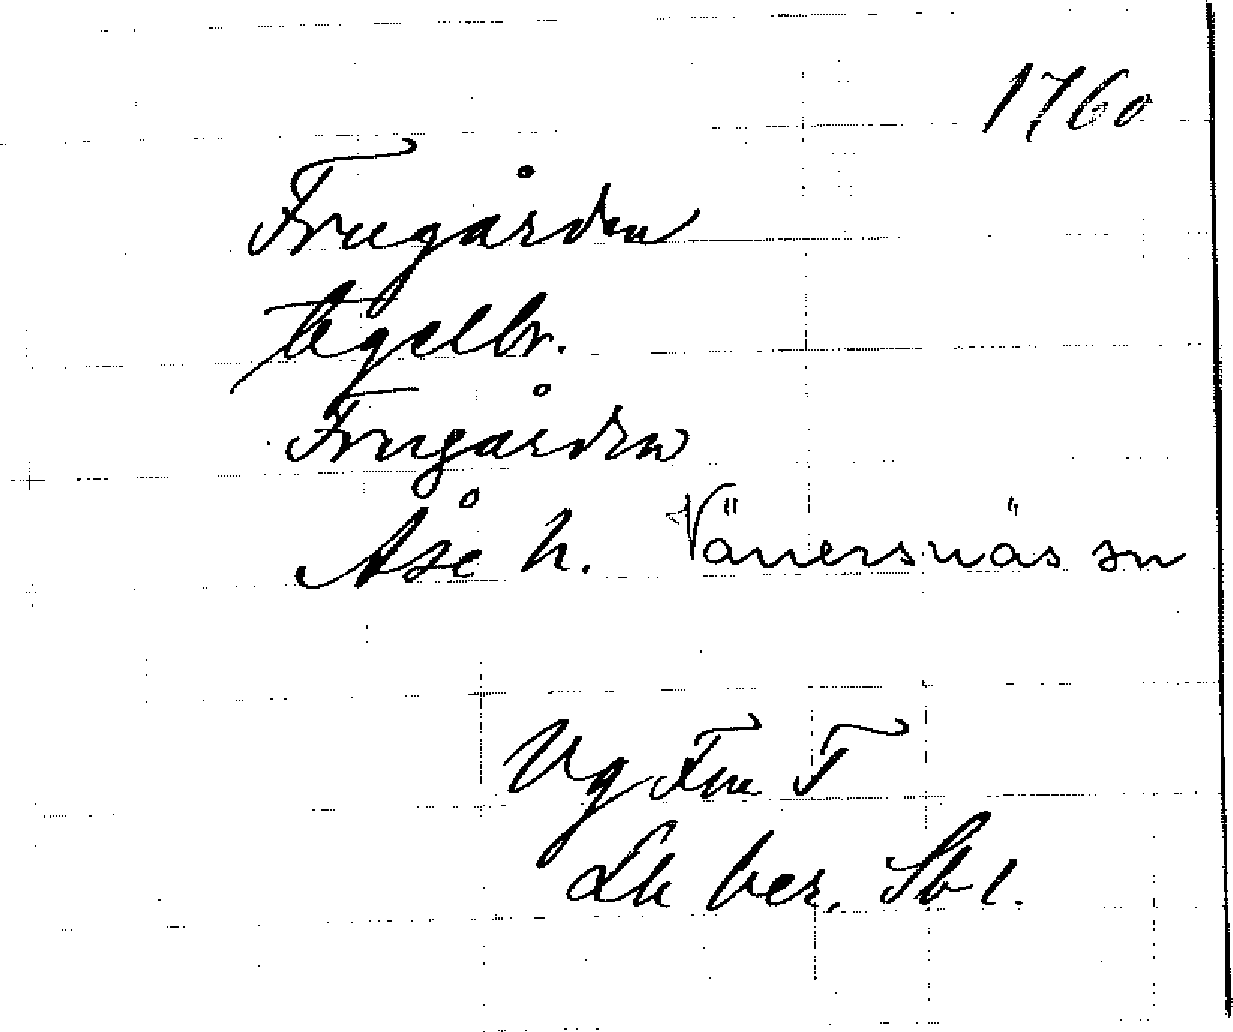 1760
Frugården
tegelbr.
Frugården
Åse h. Vänersnäs sn
Vg Fm T
Lh ber. Sbl.